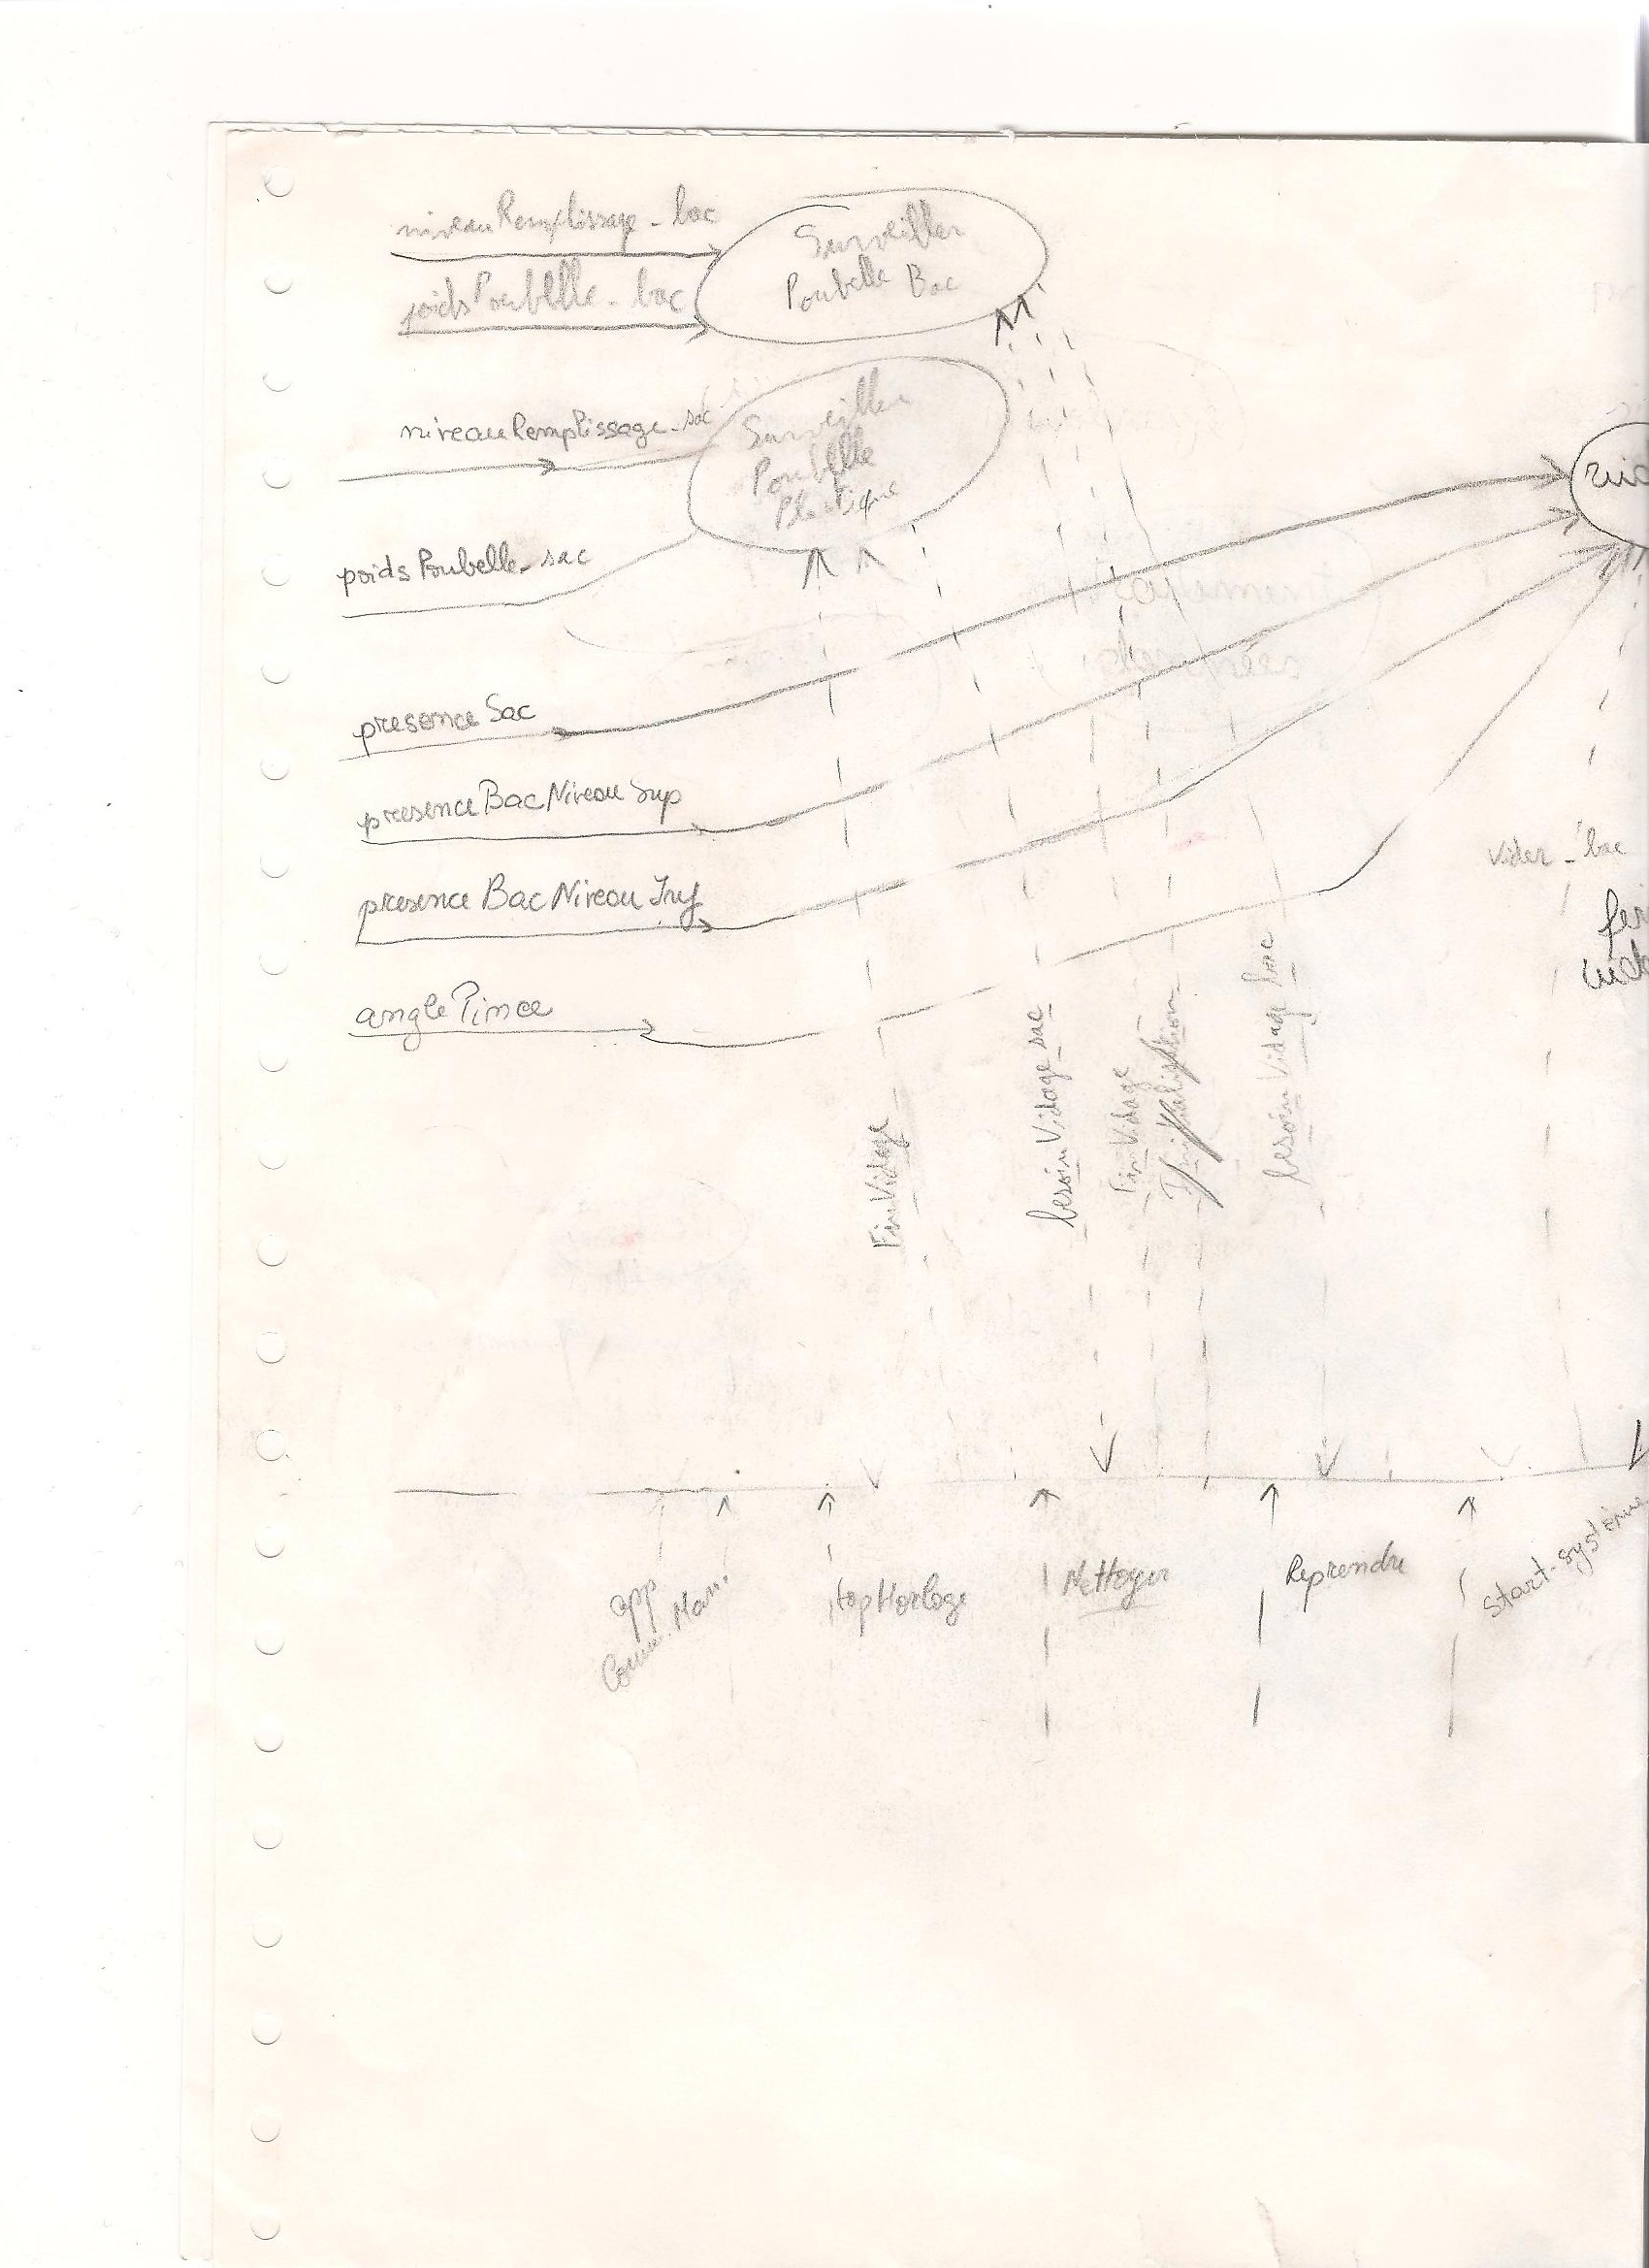 niveauRemplissage_bac
poidsPoubelle_bac
Surveiller
Poubelle Bac
niveauRemplissage_sac
Surveiller
Poubelle
Plastique
poidsPoubelle_sac
presence Sac
presence Bac Niveau Sup
presence Bac Niveau Inf
angle Pince
vider_bac
FinVidage
besoin Vidage sac
Fin Vidage
besoin Vidage bac
app
Comm. Man.
topHorloge
Nettoyer
Reprendre
Start-système